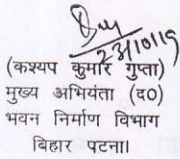 23/10/19
(कश्यप कुमार गुप्ता)
मुख्य अभियंता (द०)
भवन निर्माण विभाग
बिहार पटना।